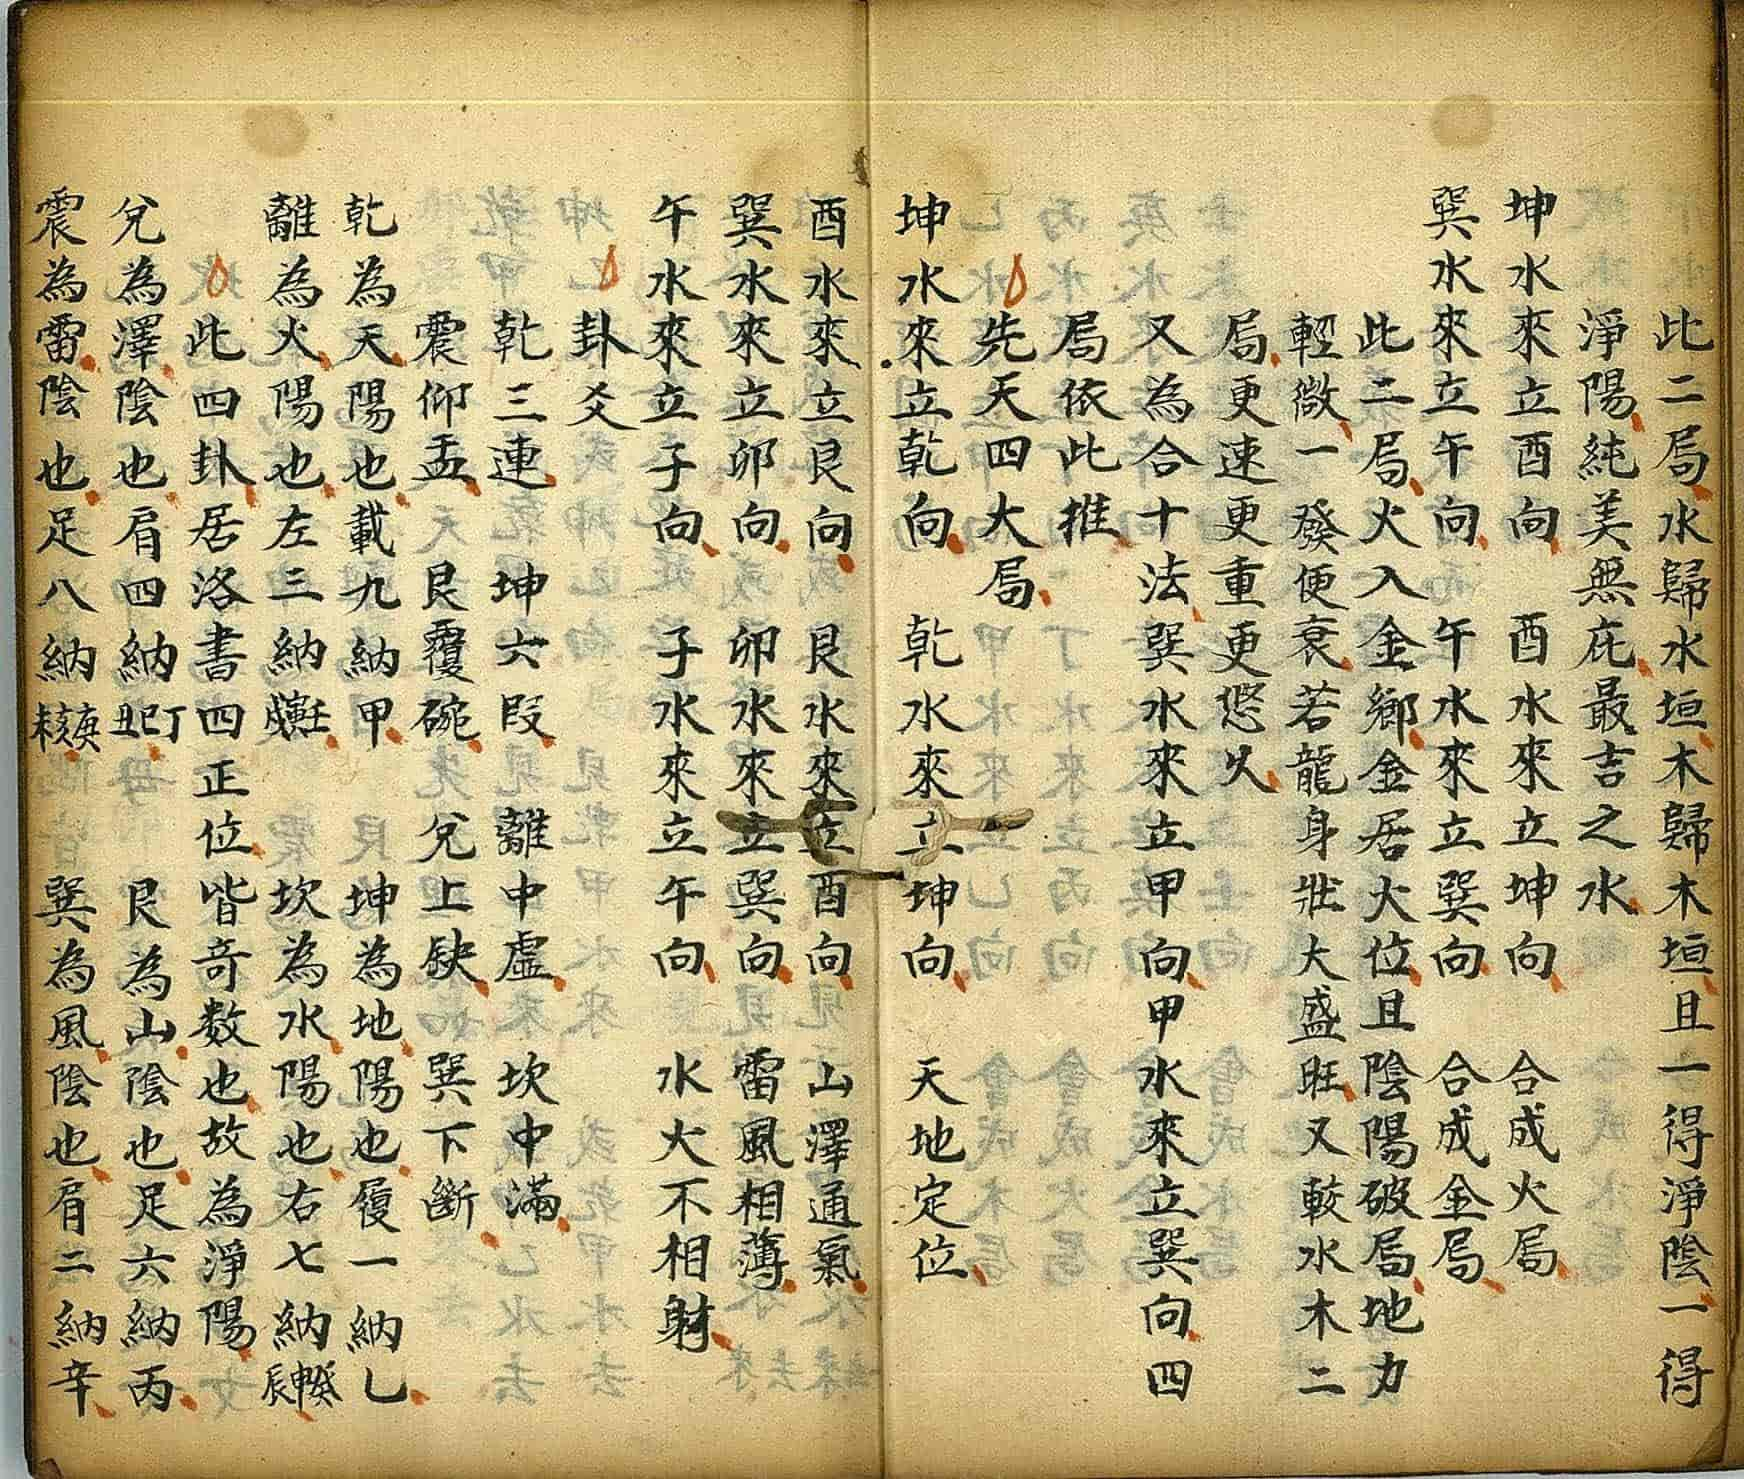 此二局水歸水垣木歸木垣且一得淨陰一得
淨陽純美無庇最吉之水
坤水來立酉向 酉水來立坤向 合成火局
巽水來立午向 午水來立巽向 合成金局
此二局火入金鄉金居火位且陰陽破局地力
輕微一發便衰若龍身壯大盛旺又較水木二
局更速更重更悠久
又為合十法巽水來立甲向甲水來立巽向四
局依此推
先天四大局
坤水來立乾向 乾水來立坤向 天地定位
酉水來立艮向 艮水來立酉向 山澤通氣
巽水來立卯向 卯水來立巽向 雷風相薄
午水來立子向 子水來立午向 水火不相射
卦爻
乾三連 坤六段 離中虛 坎中滿
震仰盂 艮覆碗 兌上缺 巽下斷
乾為天陽也載九納甲 坤為地陽也履一納乙
離為火陽也左三納壬寅戌 坎為水陽也右七納癸申辰
此四卦居洛書四正位皆奇数也故為淨陽
兌為澤陰也肩四納丁巳丑 艮為山陰也足六納丙
震為雷陰也足八納庚亥未 巽為風陰也肩二納辛